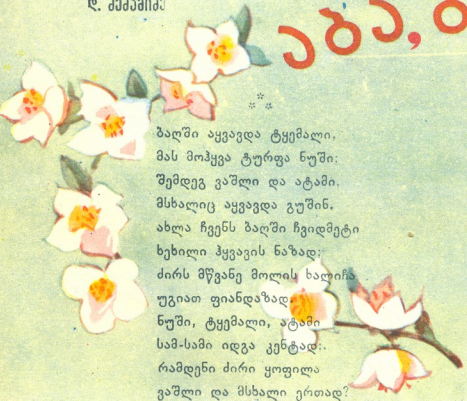 დ. ძეძამიძე
აბა,
ბაღში აყვავდა ტყემალი,
მას მოჰყვა ტურფა ნუში;
შემდეგ ვაშლი და ატამი,
მსხალიც აყვავდა გუშინ,
ახლა ჩვენს ბაღში ჩვიდმეტი
ხეხილი ჰყვავის ნაზად;
ძირს მწვანე მოლის ხალიჩა
უგიათ ფიანდაზად.
ნუში, ტყემალი, ატამი
სამ-სამი იდგა კენტად;.
რამდენი ძირი ყოფილა
ვაშლი და მსხალი ერთად?